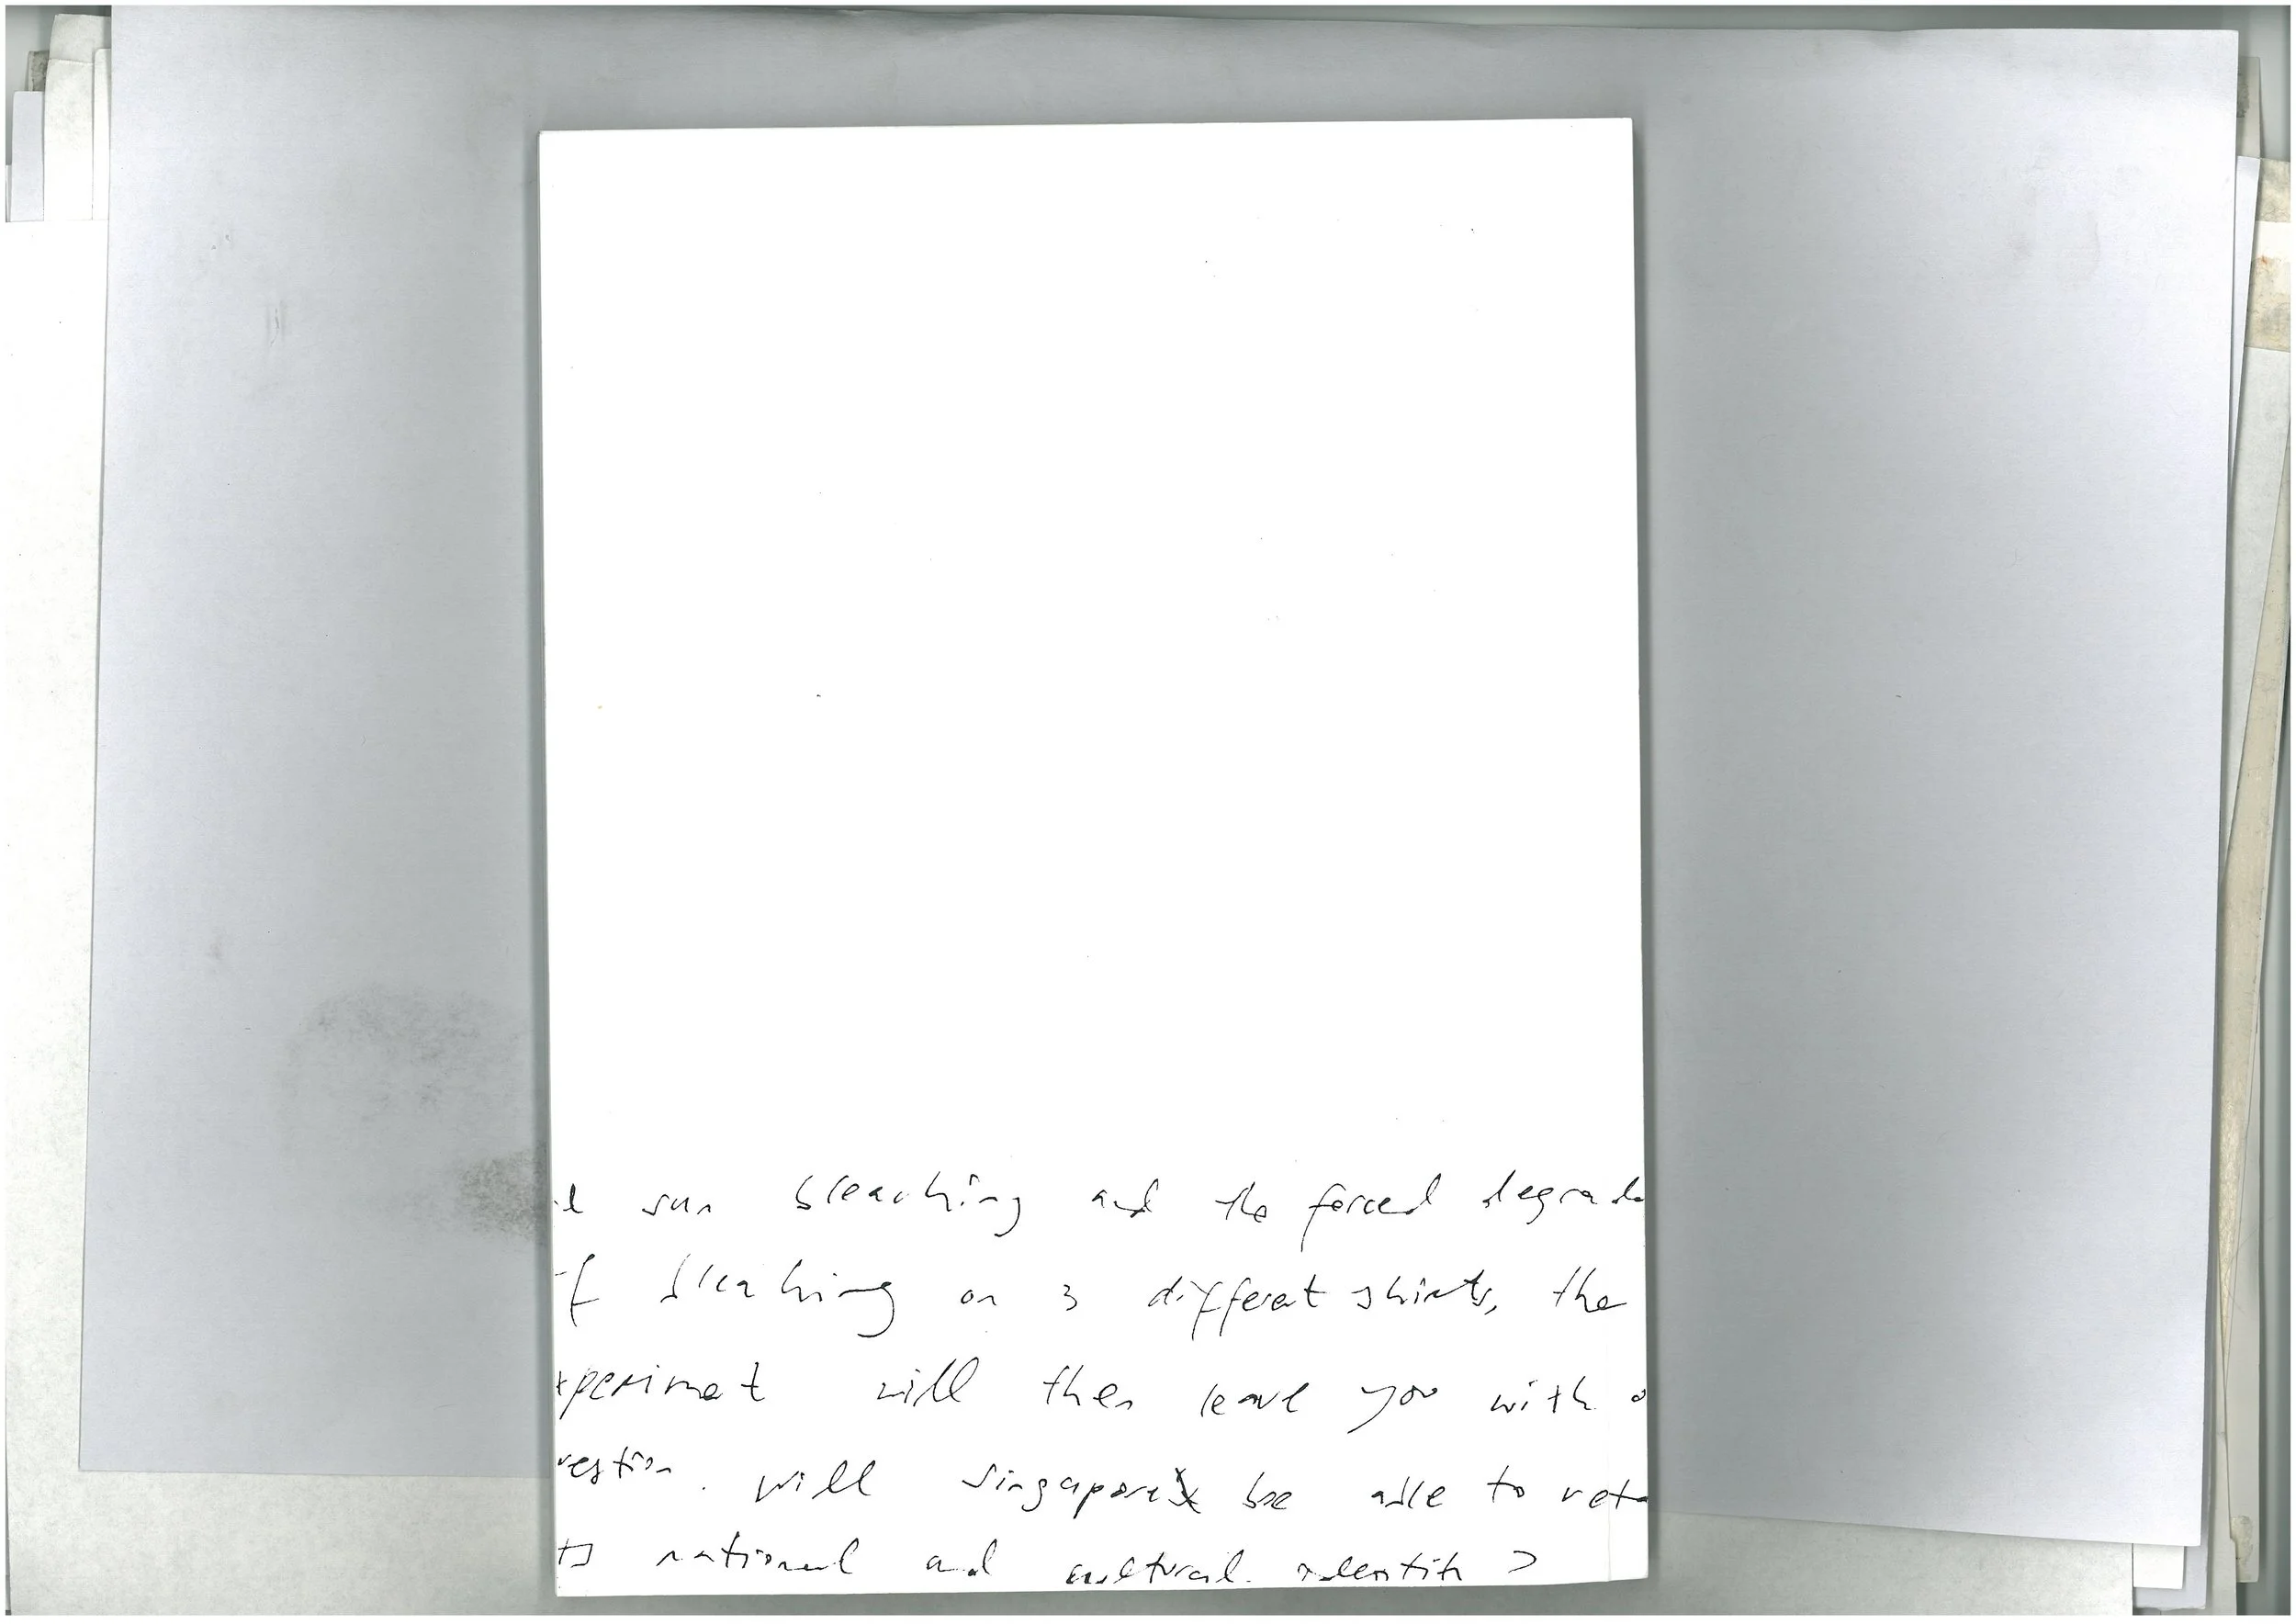 sun bleaching and the forced degrada
of bleaching on 3 different shirts, the
xperiment will then leave you with a
uestion. will Singapore be able to reta
its national and cultural identity ?